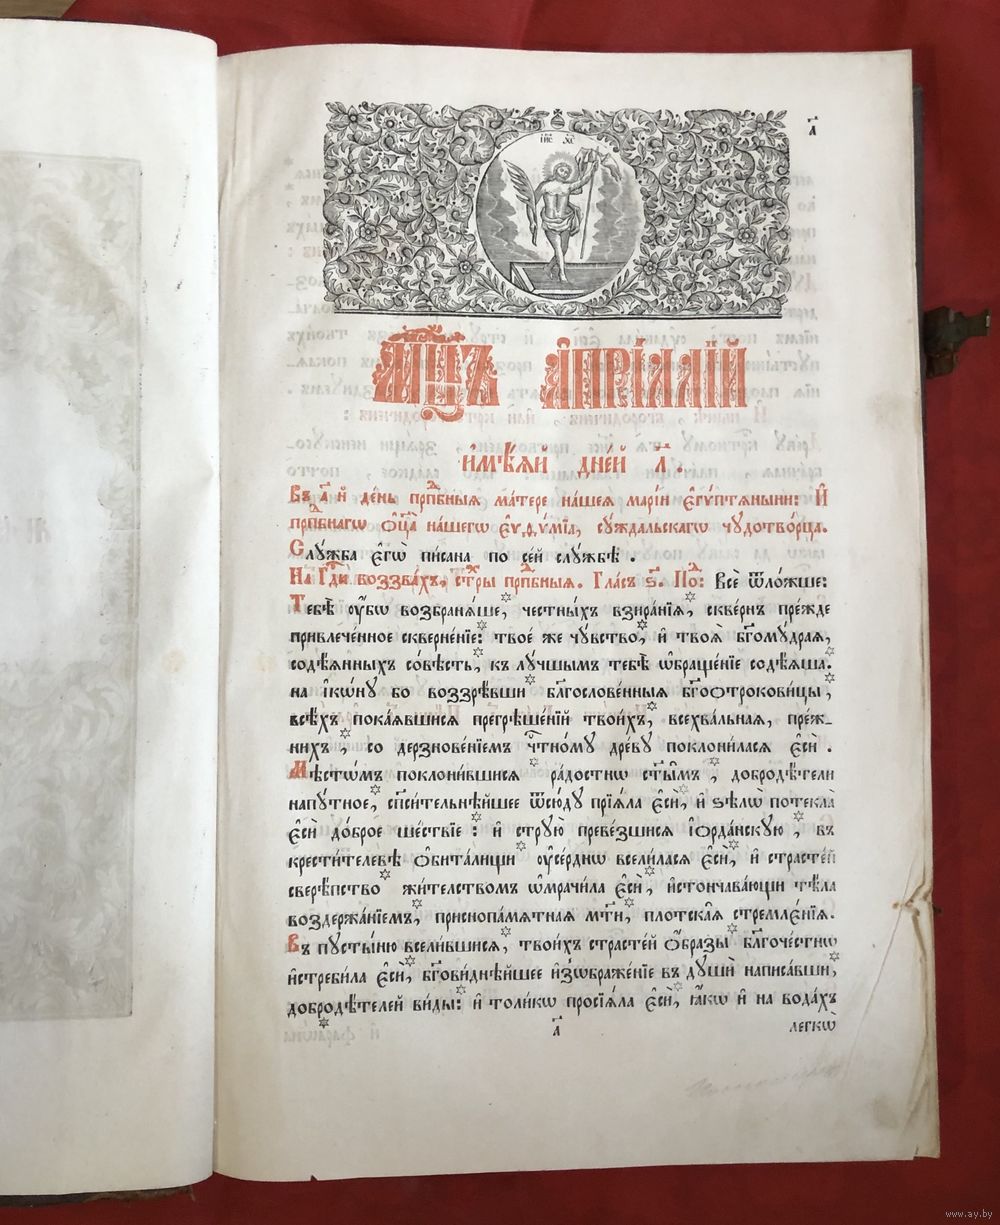 І҃ИС ХС
а҃
МЦ҃Ъ А҆ПРІ́ЛЛІЙ
и҆мѣ́ѧй дне́й л҃ .
Въ а҃ й де́нь прпⷣбныѧ ма́тере на́шеѧ марі́и є҆гѵ́птѧныни: И҆
прпⷣбнагѡ ѻ҆ц҃а̀ на́шегѡ є҆ѵⷴѳѵ́міа, сꙋ́ждальскагѡ чꙋдотво́рца.
Слꙋ́жба є҆гѡ̀ пи́сана по се́й слꙋ́жбѣ .
На Гдⷭ҇и воззва́хъ, стⷯры прпⷣбныѧ. Гла́съ ѕ҃. Поⷣ: Всѐ ѿло́жше:
Тебѣ̀ ᲂу҆́бѡ возбранѧ́ше, * че́стныхъ взира́ніѧ, * скве́рнъ пре́жде
привлече́нное скверне́ніе: * твое́ же чꙋ́вство, * и҆ твоѧ̀ бг҃омꙋ́драѧ,
содѣ́ѧнныхъ со́вѣсть, * къ лꙋ́чшымъ тебѣ̀ ѡ҆браще́ніе содѣ́ѧша. *
на і҆кѡ́нꙋ бо воззрѣ́вши * блг҃ослове́нныѧ бг҃оѻтрокови́цы, *
всѣ́хъ пока́ѧвшисѧ прегрѣше́ній твои́хъ, * всехва́льнаѧ, пре́ж-
нихъ, * со дерзнове́ніемъ чⷭ҇тно́мꙋ дре́вꙋ поклони́ласѧ є҆сѝ .
Мѣ́стѡмъ поклони́вшисѧ * ра́достнѡ ст҃ы̑мъ, * добродѣ́тели
напꙋ́тное, * сп҃си́тельнѣйшее ѿсю́дꙋ пріѧ́ла є҆сѝ, * и҆ ѕѣлѡ̀ потеклà
є҆сѝ до́брое ше́ствіе : * и҆ стрꙋю̀ преве́зшисѧ і҆ѻрда́нскꙋю, * въ
крести́телевѣ ѻ҆би́талищи * ᲂу҆се́рднѡ всели́ласѧ є҆сѝ, * и҆ страсте́й
свере́пство * жи́тельствомъ ѡ҆мрачи́ла є҆сѝ, * и҆стончава́ющи тѣ́ла
воздержа́ніемъ, * приснопа́мѧтнаѧ мт҃и, * плотска̑ѧ стремлє́ніѧ.
Въ пꙋсты́ню всели́вшисѧ, * твои́хъ страсте́й ѻ҆́бразы * блг҃оче́стнѡ
и҆стреби́ла є҆сѝ, * бг҃ови́днѣйшее и҆зѡбраже́ніе въ дꙋшѝ написа́вши, *
добродѣ́телей ви́ды: * и҆ толи́кѡ просіѧ́ла є҆сѝ, * ꙗ҆́кѡ и҆ на вода́хъ *
а҃ легкѡ̀
www.ay.by